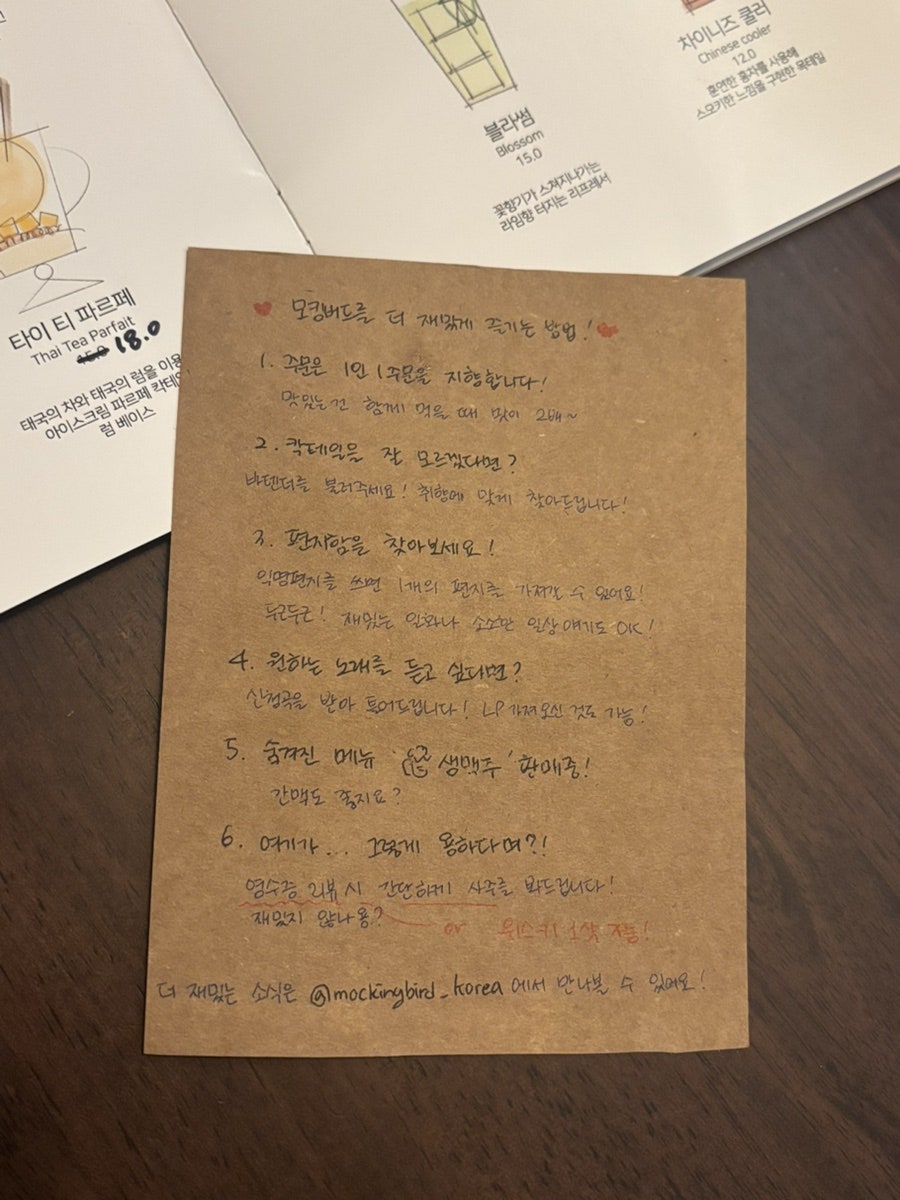 타이 티 파르페
Thai Tea Parfait
15.0 18.0
태국의 차와 태국의 럼을 이용
아이스크림 파르페 칵테일
럼 베이스
블라썸
Blossom
15.0
꽃향기가 스쳐지나가는
라임향 터지는 리프레셔
차이니즈 쿨러
Chinese cooler
12.0
훈연한 홍차를 사용해
스모키한 느낌을 구현한 목테일
♥ 모킹버드를 더 재밌게 즐기는 방법! ♥
1. 주문은 1인 1주문을 지향합니다!
맛있는 건 함께 먹을 때 맛이 2배~
2. 칵테일을 잘 모르겠다면?
바텐더를 불러주세요! 취향에 맞게 찾아드립니다!
3. 편지함을 찾아보세요!
익명편지를 쓰면 1개의 편지를 가져갈 수 있어요!
두근두근! 재밌는 일화나 소소한 일상 얘기도 OK!
4. 원하는 노래를 듣고 싶다면?
신청곡을 받아 틀어드립니다! LP 가져오신 것도 가능!
5. 숨겨진 메뉴 '생맥주' 판매중!
간맥도 좋지요?
6. 여기가... 그렇게 용하다며?!
영수증 리뷰 시 간단하게 사주를 봐드립니다!
재밌지 않나용?
or 위스키 1샷 제공!
더 재밌는 소식은 @mockingbird_korea 에서 만나볼 수 있어요!